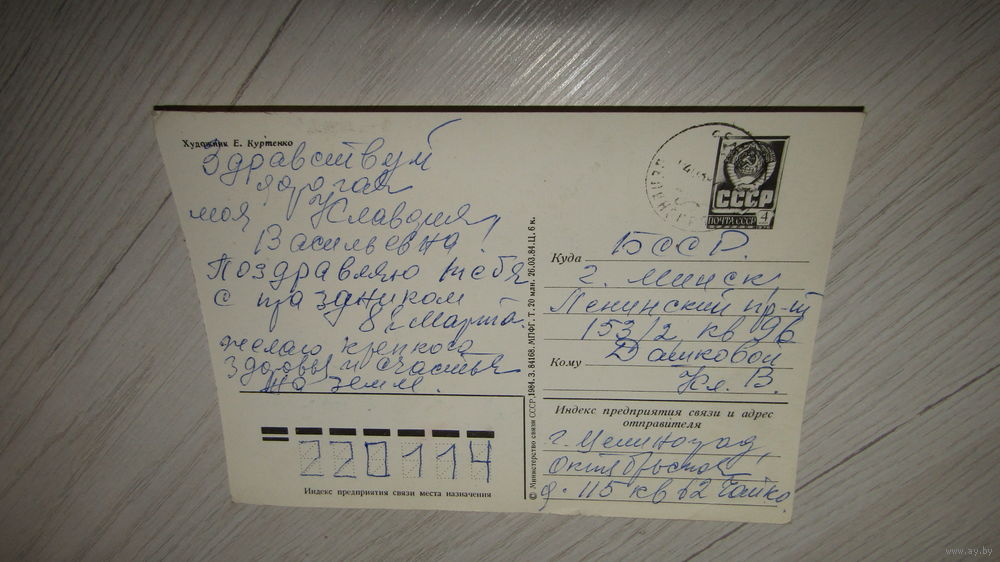 Художник Е. Куртенко
Здравствуй
дорогая
моя Клавдия
Васильевна!
Поздравляю тебя
с праздником
8 Марта.
желаю крепкого
здоровья и счастья
на земле.
Индекс предприятия связи места назначения
220114
© Министерство связи СССР, 1984. З. 84168. МПФГ. Т. 20 млн. 26.03.84. Ц. 6 к.
СССР
ПОЧТА СССР 4
Куда БССР.
г. Минск,
Ленинский пр-т
153/2, кв 96
Кому Дашковой
Кл. В.
Индекс предприятия связи и адрес
отправителя
г. Целиноград,
Октябрьская
д. 115 кв 62 Чайко
www.ay.by